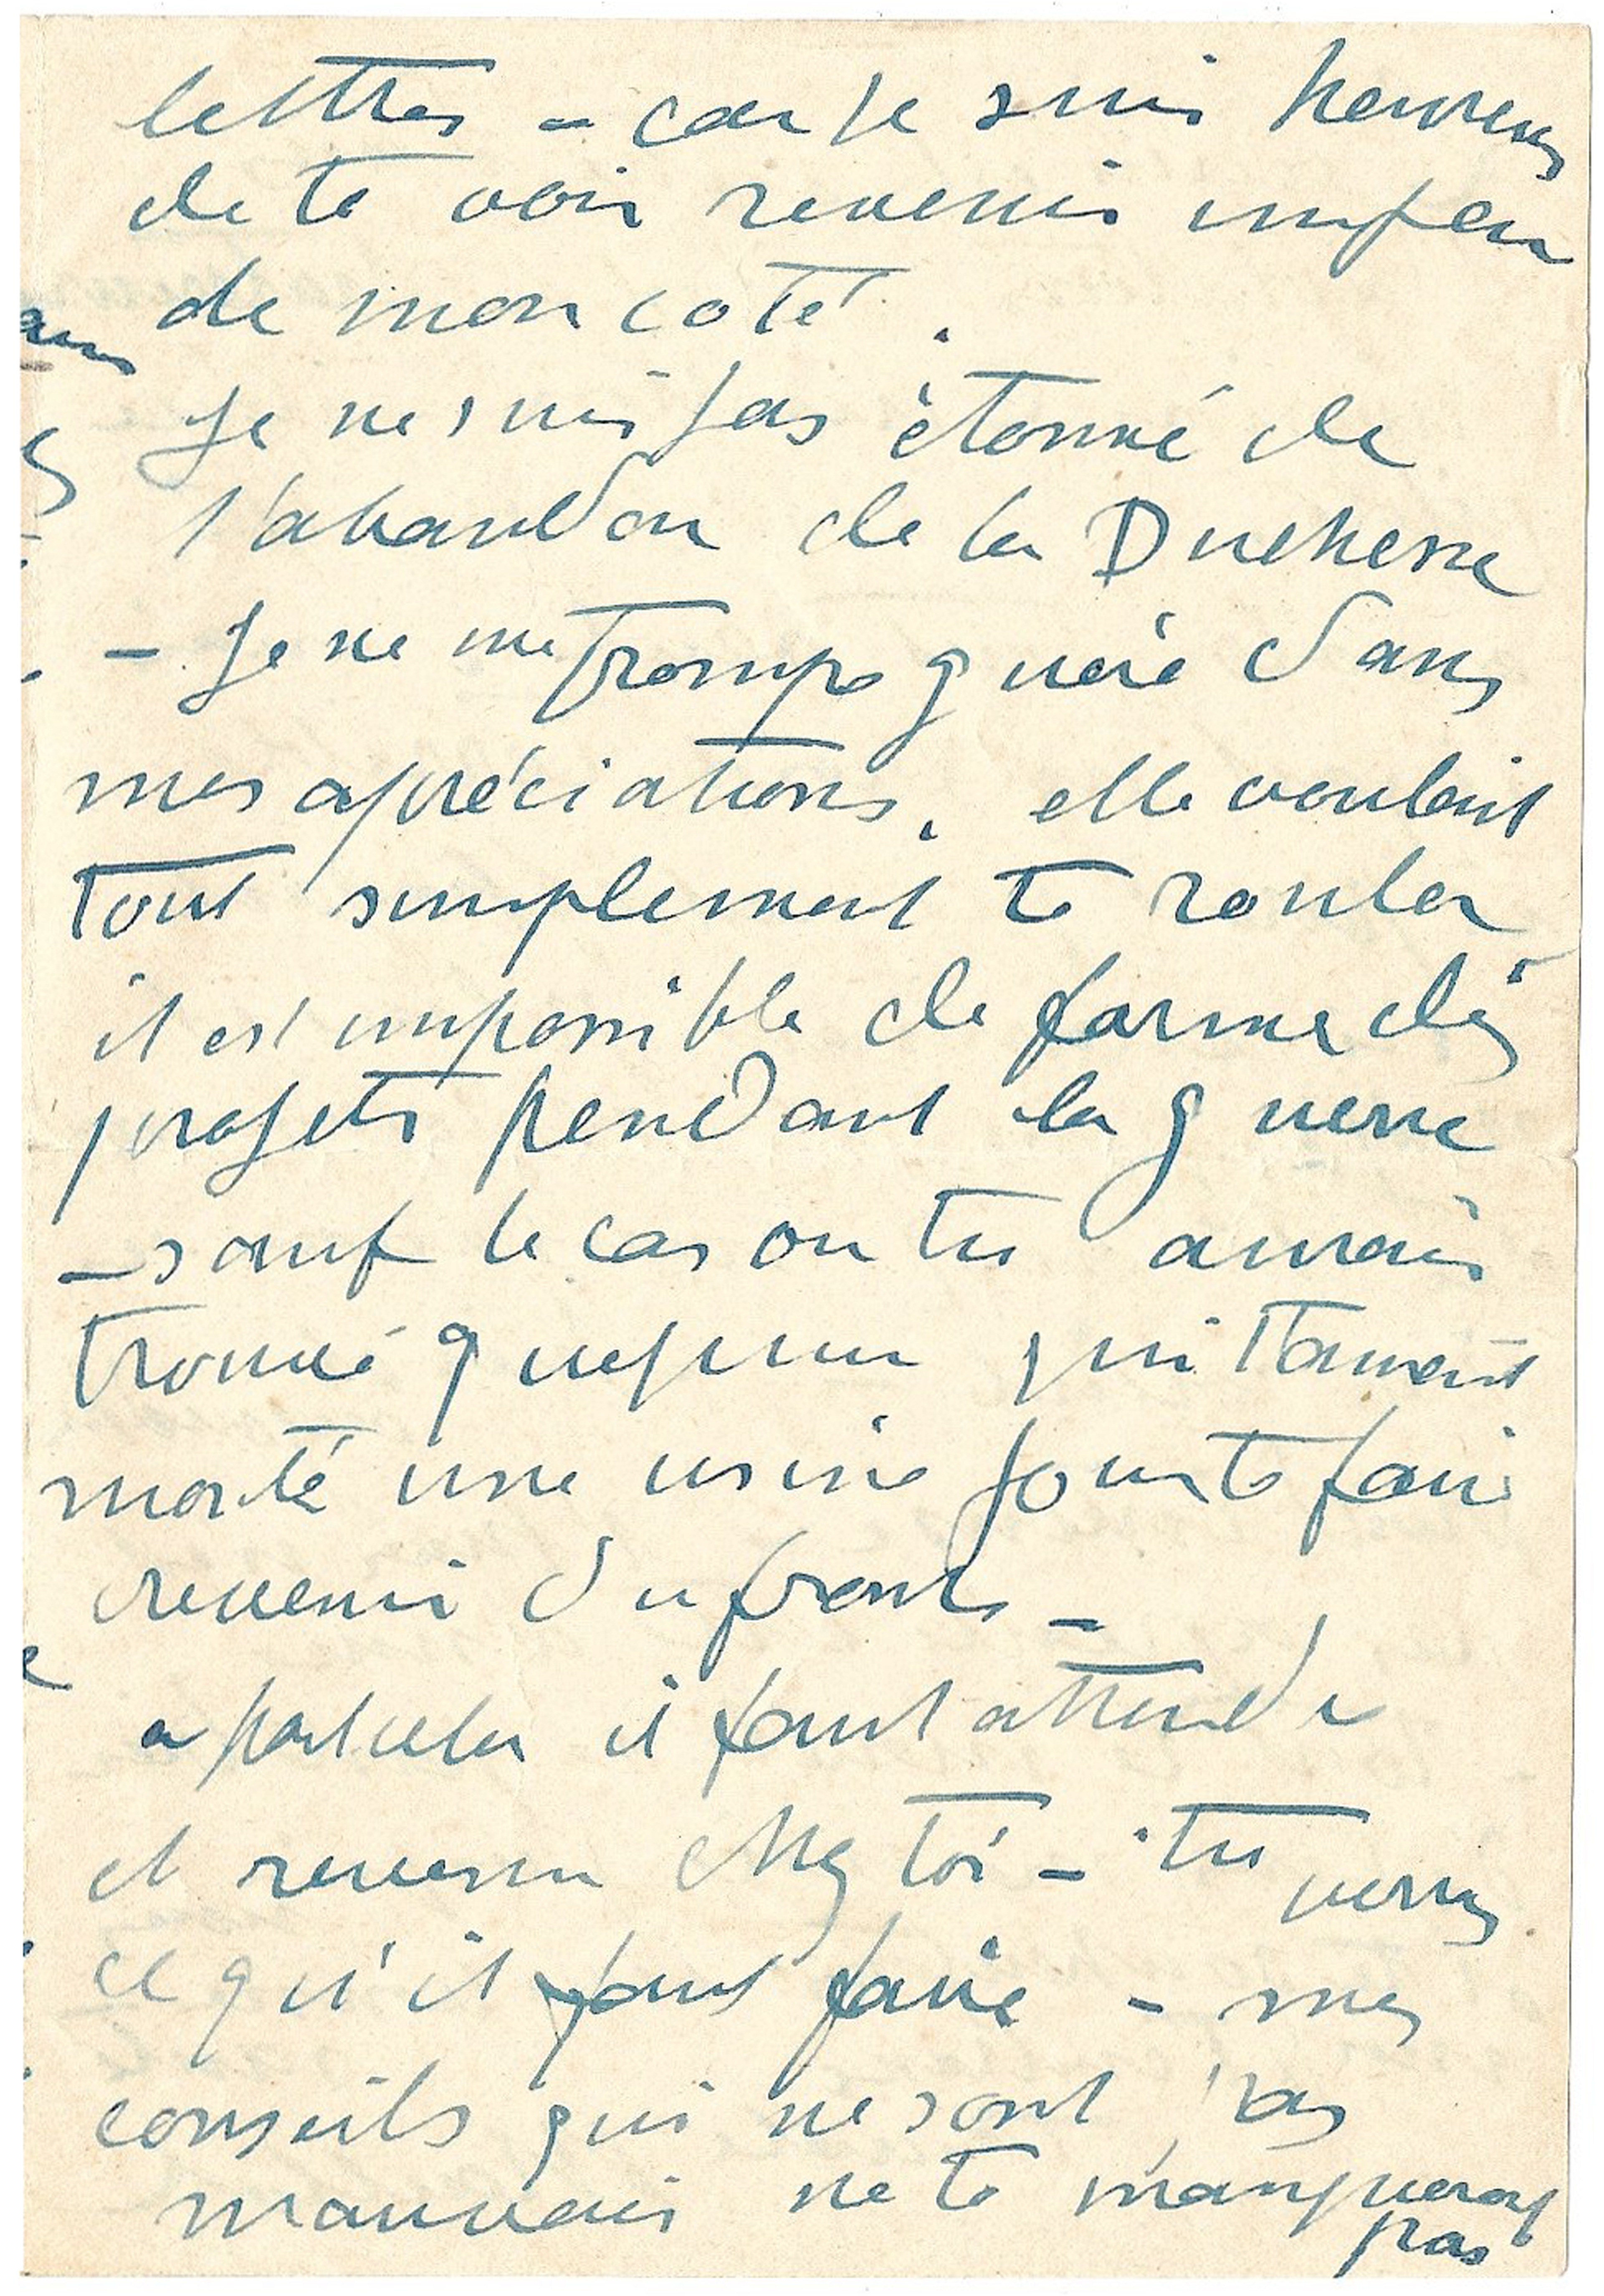 lettres - car je suis heureux
de te voir revenir un peu
de mon coté.
Je ne suis pas étonné de
l'abandon de la Duchesse
- Je ne me trompe guère dans
mes apréciations. elle voulait
tout simplement te rouler
il est impossible de forme des
projets pendant la guerre
- sauf le cas ou tu aurais
trouvé quequun qui
monté une usine pour te faire
revenir du front -
a part cela il faut attendre
et revenu chez toi - tu verras
ce qu'il faut faire - mes
conseils qui ne sont pas
mauvais ne te manqueront
pas